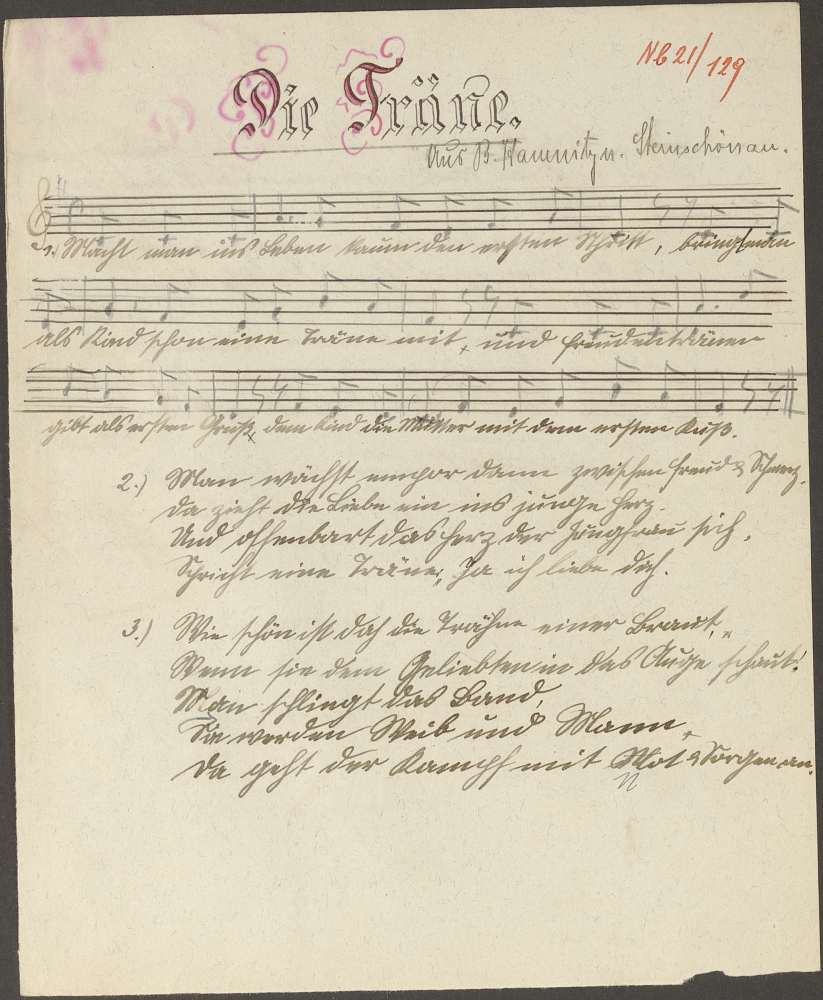 NB 21/129
Die Träne.
Aus B. Kamnitz u. Steinschönau.
1.) Macht man ins Leben kaum den ersten Schritt, bringt man
als Kind schon eine Träne mit, und Freudentränen
gibt als ersten Gruß, dem Kind die Mutter mit dem ersten Kuß.
2.) Man wächst empor dann zwischen Freud & Schmerz,
da zieht die Liebe ein ins junge Herz.
Und offenbart das Herz der Jungfrau sich,
Spricht eine Träne: Ja ich liebe dich.
3.) Wie schön ist doch die Trähne einer Braut,
Wenn sie dem Geliebten in das Auge schaut!
Man schlingt das Band,
Sie werden Weib und Mann,
da geht der Kampf mit Not & Sorgen an.